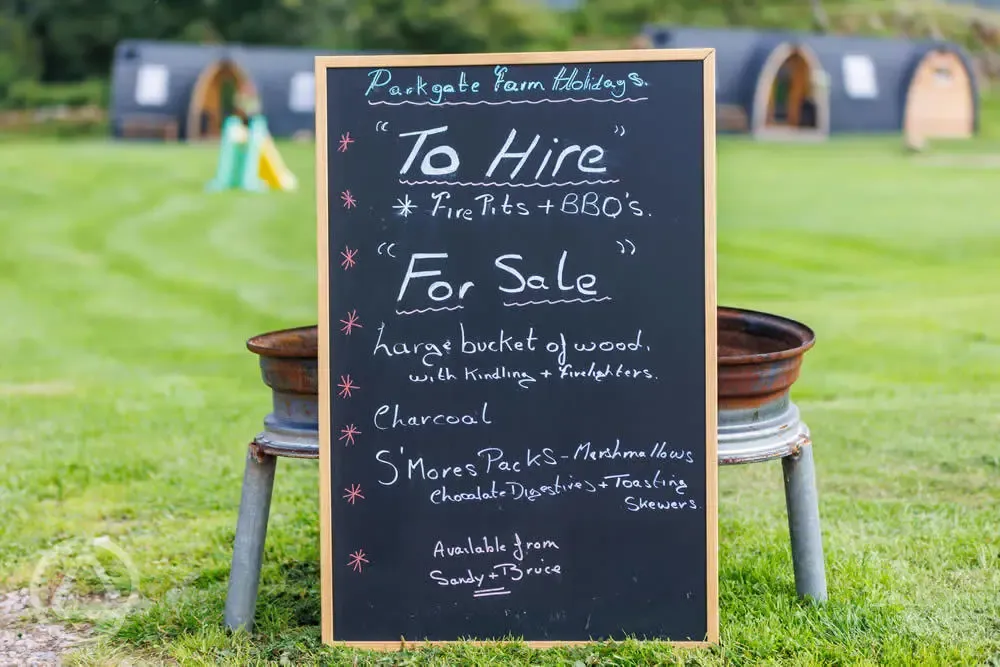 Parkgate Farm Holidays.
"To Hire"
* Fire Pits + BBQ's.
"For Sale"
Large bucket of wood.
with Kindling + firelighters.
Charcoal
S'Mores Packs - Marshmallows
Chocolate Digestives + Toasting
Skewers.
Available from
Sandy + Bruce